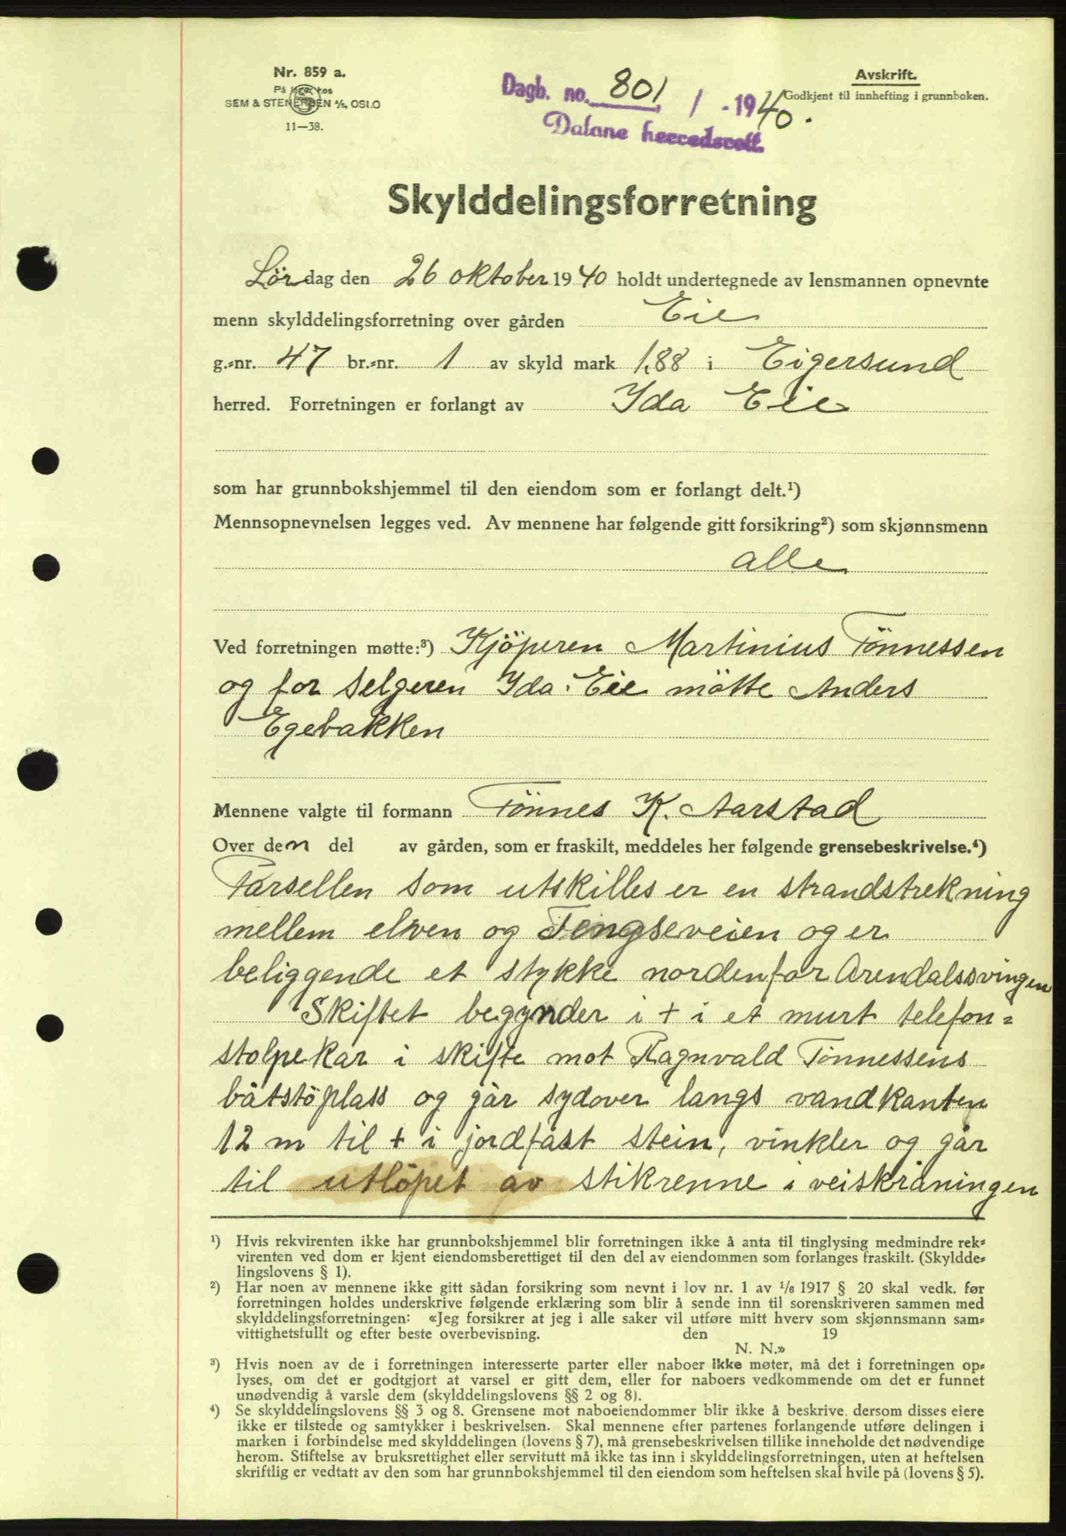 Nr. 859 a.
SEM & STENERSEN A/S, OSLO
11—38.
Dagb. no. 801 / - 1940.
Dalane herredsrett.
Avskrift.
Godkjent til innhefting i grunnboken.
Skylddelingsforretning
Lørdag den 26 oktober 1940 holdt undertegnede av lensmannen opnevnte
menn skylddelingsforretning over gården Eie
g.-nr. 47 br.-nr. 1 av skyld mark 1,88 i Eigersund
herred. Forretningen er forlangt av Ida Eie
som har grunnbokshjemmel til den eiendom som er forlangt delt.¹)
Mennsopnevnelsen legges ved. Av mennene har følgende gitt forsikring²) som skjønnsmenn
alle
Ved forretningen møtte:³) Kjöperen Martinius Tönnessen
og for selgeren Ida Eie mötte Anders
Egebakken
Mennene valgte til formann Tönnes K. Aarstad
Over den del av gården, som er fraskilt, meddeles her følgende grensebeskrivelse.⁴)
Parsellen som utskilles er en strandstrekning
mellem elven og Tengseveien og er
beliggende et stykke nordenfor Arendalssvingen
Skiftet begynder i + i et murt telefon=
stolpekar i skifte mot Ragnvald Tönnessens
båtstöplass og går sydover langs vandkanten
12 m til + i jordfast stein, vinkler og går
til utlöpet av stikrenne i veiskråningen
¹) Hvis rekvirenten ikke har grunnbokshjemmel blir forretningen ikke å anta til tinglysing medmindre rek-
virenten ved dom er kjent eiendomsberettiget til den del av eiendommen som forlanges fraskilt. (Skyldde-
lingslovens § 1).
²) Har noen av mennene ikke gitt sådan forsikring som nevnt i lov nr. 1 av 1/6 1917 § 20 skal vedk. før
forretningen holdes underskrive følgende erklæring som blir å sende inn til sorenskriveren sammen med
skylddelingsforretningen: «Jeg forsikrer at jeg i alle saker vil utføre mitt hverv som skjønnsmann sam-
vittighetsfullt og efter beste overbevisning. den 19
N. N.»
³) Hvis noen av de i forretningen interesserte parter eller naboer ikke møter, må det i forretningen op-
lyses, om det er godtgjort at varsel er gitt dem, eller for naboers vedkommende om det er funnet
unødvendig å varsle dem (skylddelingslovens §§ 2 og 8).
⁴) Se skylddelingslovens §§ 3 og 8. Grensene mot naboeiendommer blir ikke å beskrive, dersom disses eiere
ikke er tilstede og samtykker i beskrivelsen. Skal mennene efter partenes forlangende utføre delingen i
marken i forbindelse med skylddelingen (lovens § 7), må grensebeskrivelsen tillike inneholde det nødvendige
herom. Stiftelse av bruksrettighet eller servitutt må ikke tas inn i skylddelingsforretningen, uten at heftelsen
skriftlig er vedtatt av den som har grunnbokshjemmel til den eiendom som heftelsen skal hvile på (lovens § 5).